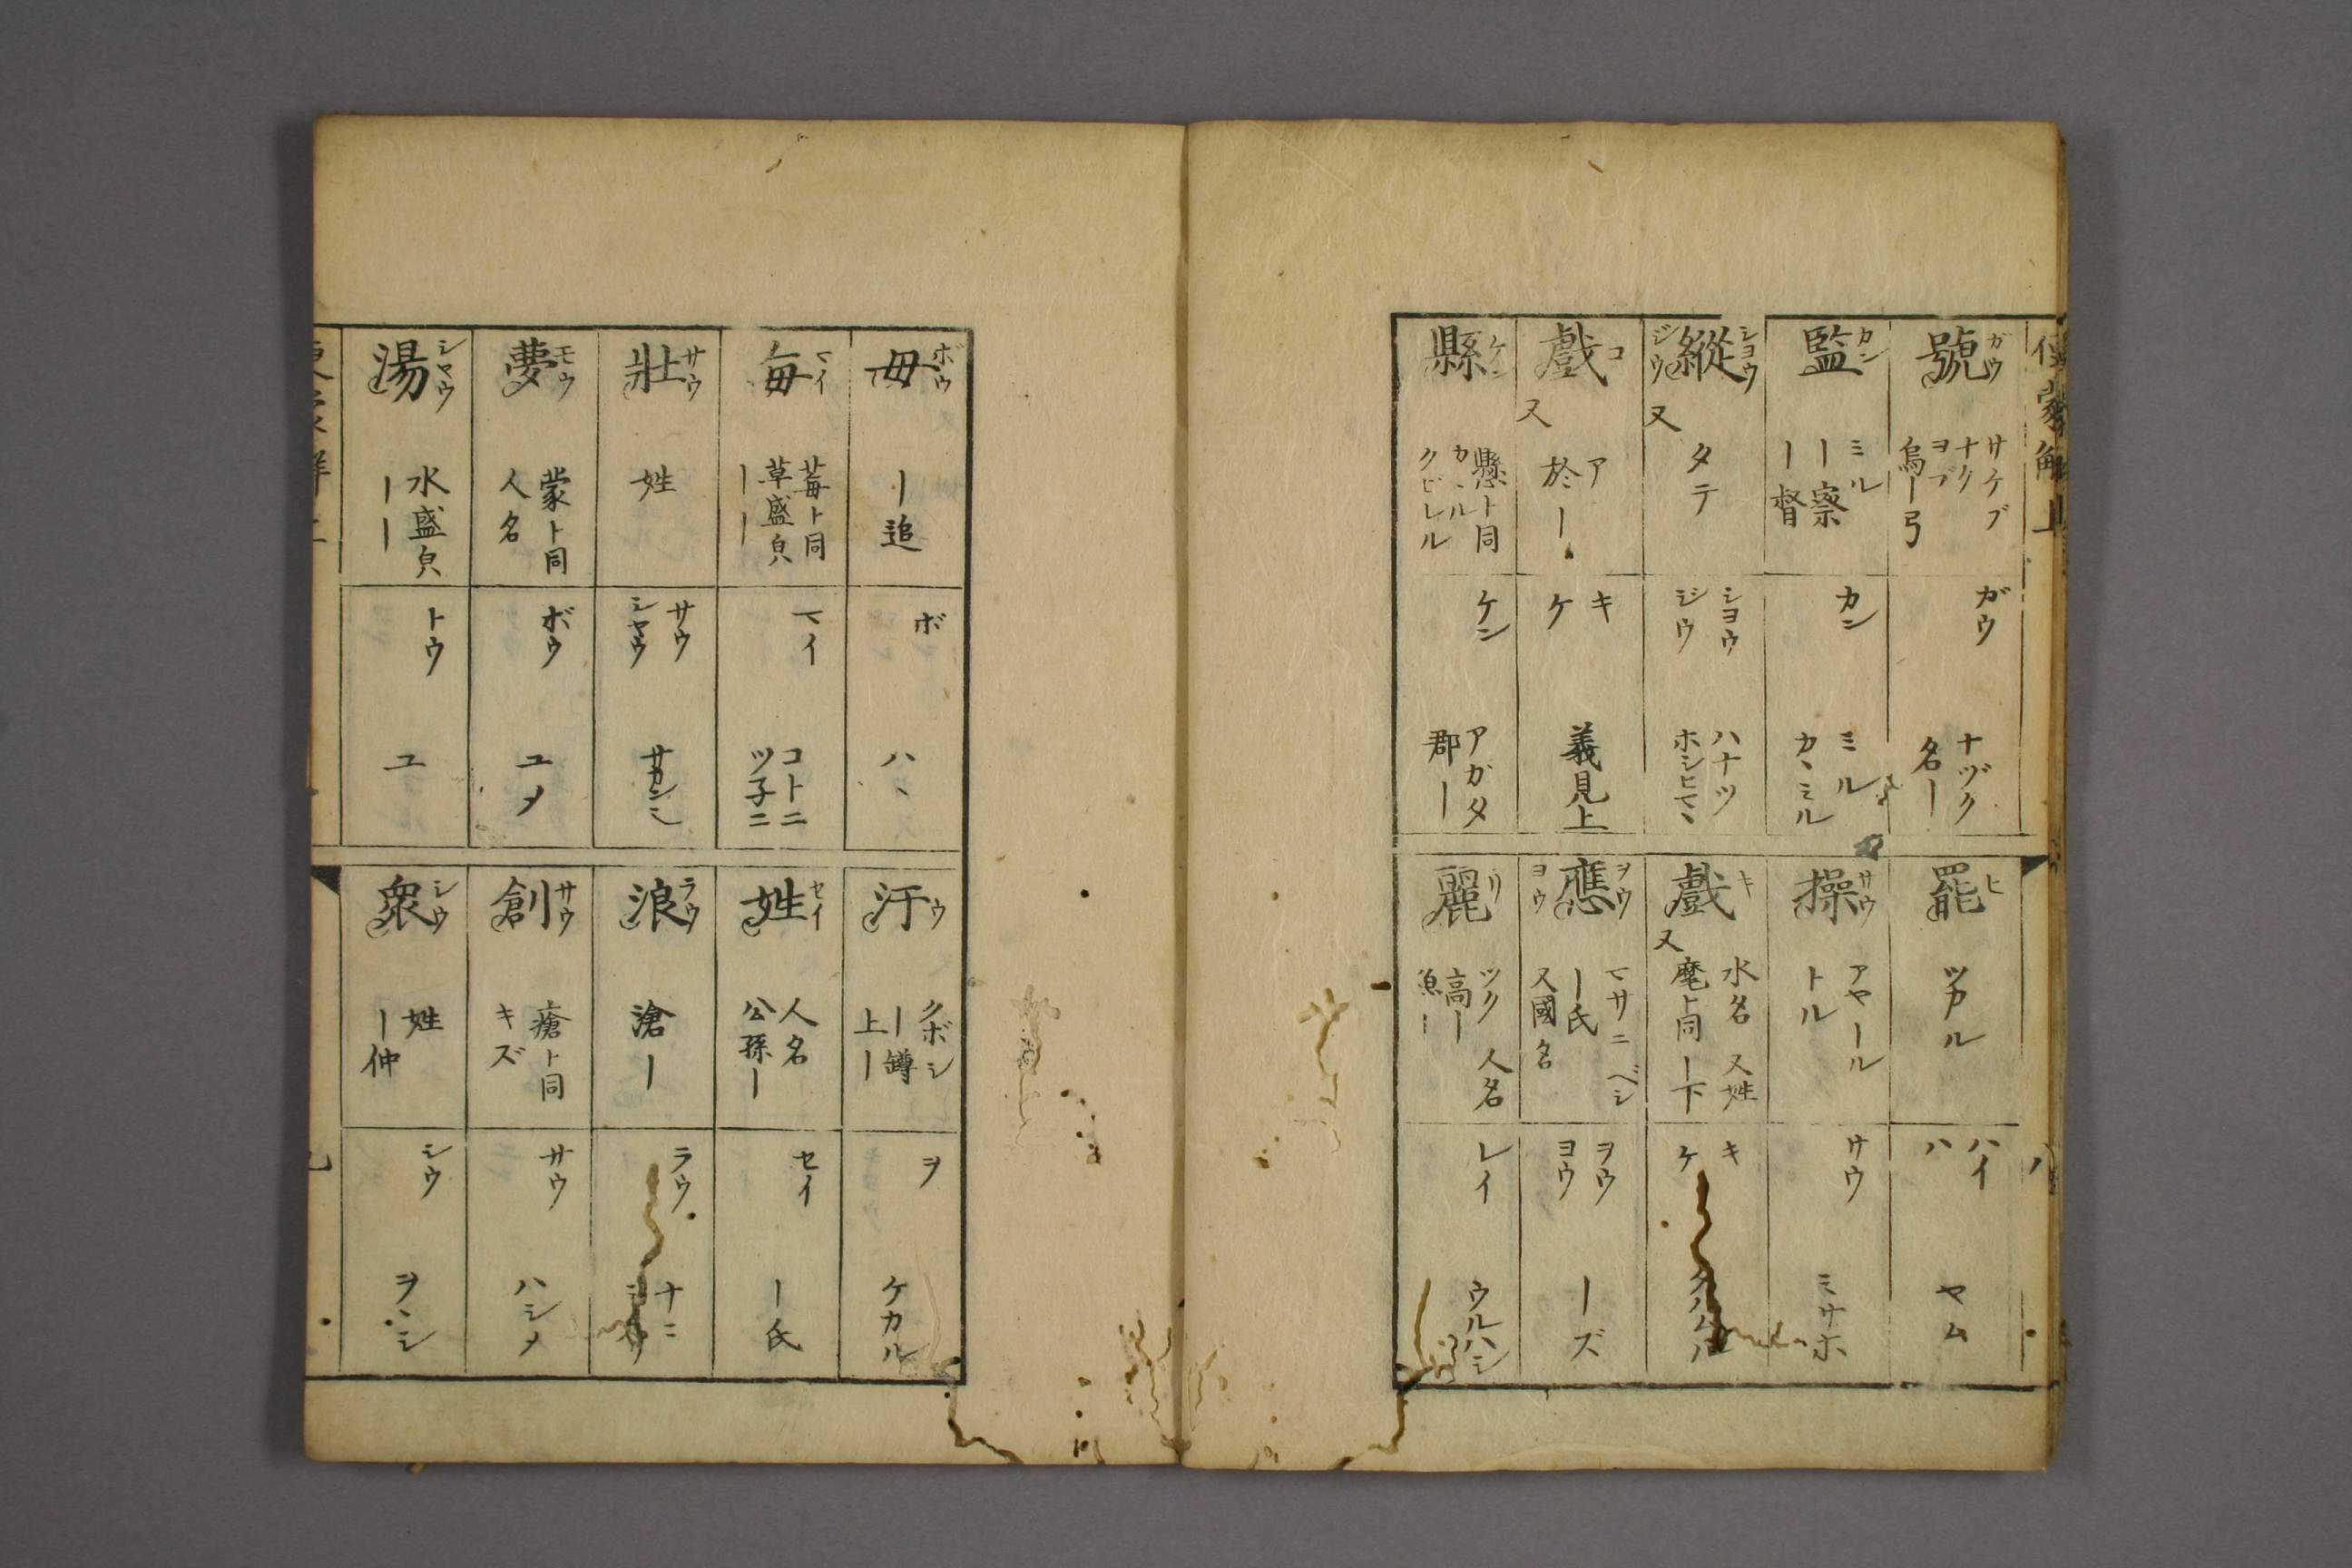 號 ガウ サケブ ナク ヨブ 烏ー弓
ガウ ナヅク 名ー
監 カン ミル ー察 ー督
カン ミル カヽミル
縱 シヨウ ジウ 又 タテ
シヨウ ジウ ハナツ ホシヒマヽ
戲 コ 又 ア 於ー
キ ケ 義見上
縣 ケン 懸ト同 カヽル クビレル
ケン アガタ 郡ー
罷 ヒ ツカル
ハイ ハ ヤム
操 サウ アヤール トル
サウ ミサホ
戲 キ 又 水名 又姓 麾ト同 ー下
キ ケ
應 ヲウ ヨウ マサニ ベシ ー氏 又國名
ヲウ ヨウ ーズ
麗 リ ツク 人名 高ー 魚ー
レイ ウルハシ
毋 ボウ ー追
ボ ハヽ
毎 マイ 莓ト同 草盛皃 ーー
マイ コトニ ツ子ニ
壯 サウ 姓
サウ シヤウ サカンニ
夢 モウ 蒙ト同 人名
ボウ ユメ
湯 シヤウ 水盛皃 ーー
トウ ユ
汙 ウ クボシ ー罇 上ー
ヲ ケカル
姓 セイ 人名 公孫ー
セイ ー氏
浪 ラウ 滄ー
ラウ ナニ
創 サウ 瘡ト同 キズ
サウ ハシメ
衆 シウ 姓 ー仲
シウ ヲヽシ